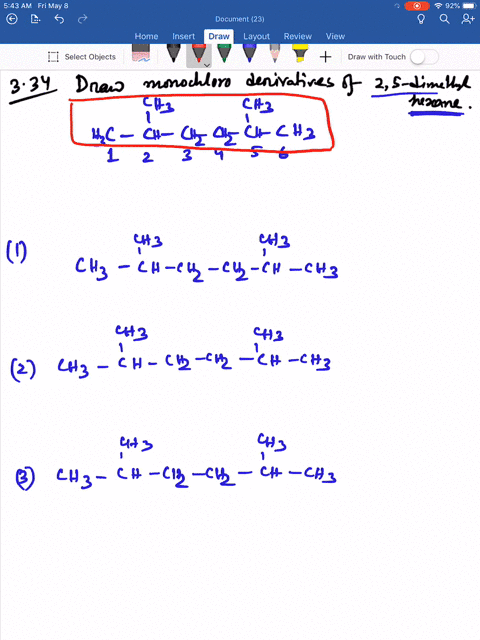 5:43 AM Fri May 8
91%
Document (23)
Home Insert Draw Layout Review View
Select Objects
Draw with Touch
3.34 Draw monochloro derivatives of 2,5-dimethyl
hexane.
CH3 CH3
H3C - CH - CH2 - CH2 - CH - CH3
1 2 3 4 5 6
(1)
CH3 CH3
CH3 - CH - CH2 - CH2 - CH - CH3
(2)
CH3 CH3
CH3 - CH - CH2 - CH2 - CH - CH3
(3)
CH3 CH3
CH3 - CH - CH2 - CH2 - CH - CH3